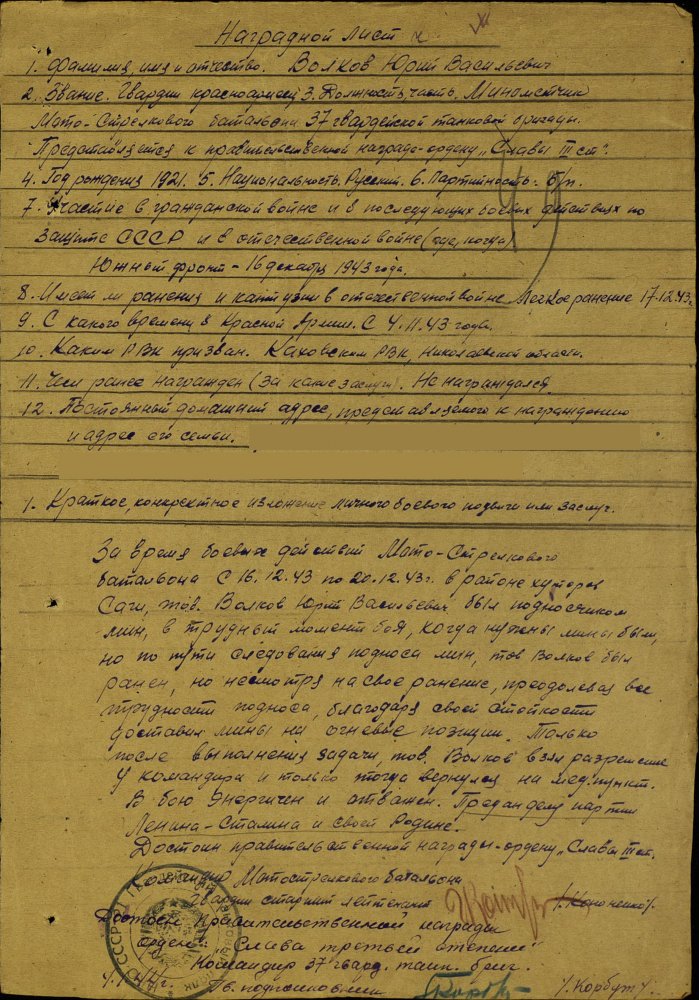 Наградной лист
1. Фамилия, имя и отчество. Волков Юрий Васильевич
2. Звание. Гвардии красноармеец 3. Должность, часть. Минометчик
Мото-Стрелкового батальона 37 гвардейской танковой бригады.
Представляется к правительственной награде-ордену „Славы III ст".
4. Год рождения 1921. 5. Национальность. Русский. 6. Партийность. б/п.
7. Участие в гражданской войне и в последующих боевых действиях по
защите СССР и в отечественной войне (где, когда)
Южный фронт - 16 декабря 1943 года.
8. Имеет ли ранения и контузии в отечественной войне Легкое ранение 17.12.43г.
9. С какого времени в Красной Армии. С 4.11.43 года.
10. Каким РВК призван. Каховским РВК, Николаевской области.
11. Чем ранее награжден (за какие заслуги). Не награждался.
12. Постоянный домашний адрес, представляемого к награждению
и адрес его семьи.
1. Краткое, конкретное изложение личного боевого подвига или заслуг.
За время боевых действий Мото-Стрелкового
батальона с 16.12.43 по 20.12.43г. в районе хуторов
Саги, тов. Волков Юрий Васильевич был подносчиком
мин, в трудный момент боя, когда нужны мины были,
но по пути следования подноса мин, тов Волков был
ранен, но несмотря на свое ранение, преодолевая все
трудности подноса, благодаря своей стойкости
доставил мины на огневые позиции. Только
после выполнения задачи, тов. Волков взял разрешение
у командира и только тогда вернулся на мед.пункт.
В бою энергичен и отважен. Предан делу партии
Ленина-Сталина и своей Родине.
Достоин правительственной награды-ордену „Славы III ст.
Командир Мотострелкового батальона
гвардии старший лейтенант /Кононенко/.
Достоин правительственной награды
орден: „Слава третьей степени"
Командир 37 гвард. танк. бриг.
гв. подполковник /Корбут/.